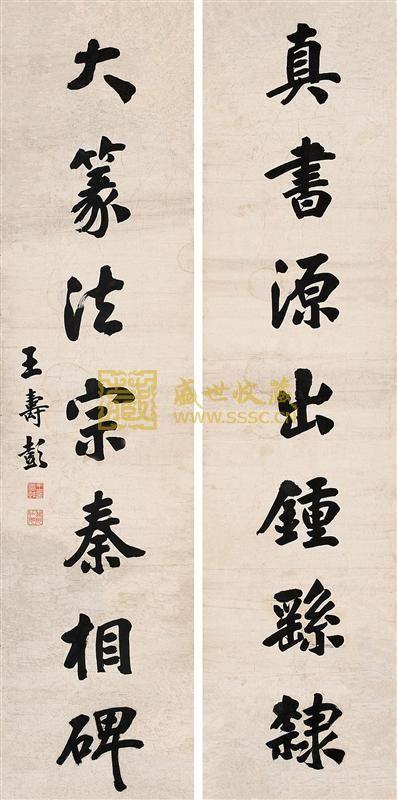 真書源出鍾繇隸
大篆法宗秦相碑
王壽彭
盛世收藏
www.sssc.cn